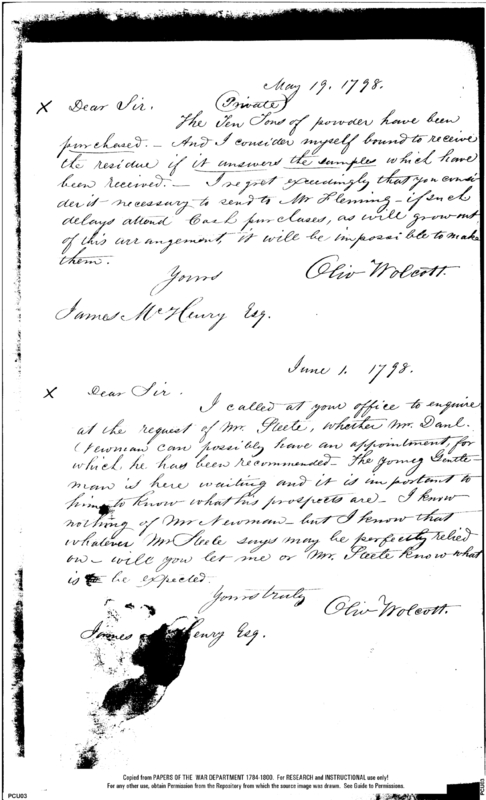 May 19. 1798.
x Dear Sir. (Private)
The Ten Tons of powder have been
purchased. – And I consider myself bound to receive
the residue if it answers the samples which have
been received. – I regret exceedingly that you consi-
der it necessary to send to Mr Fleming – if such
delays attend Cash purchases, as will grow out
of this arrangement, it will be impossible to make
them.
Yours
Oliv Wolcott.
James McHenry Esq.
June 1. 1798.
x Dear Sir.
I called at your office to enquire
at the request of Mr. Steele, whether Mr. Danl.
Newman can possibly have an appointment, for
which, he has been recommended – The young Gentle-
man is here waiting and it is important to
him to know what his prospects are – I know
nothing of Mr Newman – but I know that
whatever Mr Steele says may be perfectly relied
on – will you let me or Mr. Steele know what
is to be expected.
Yours truly
Oliv Wolcott.
James Henry Esq.
Copied from PAPERS OF THE WAR DEPARTMENT 1784-1800. For RESEARCH and INSTRUCTIONAL use only!
For any other use, obtain Permission from the Repository from which the source image was drawn. See Guide to Permissions.
PCU03
PCU03